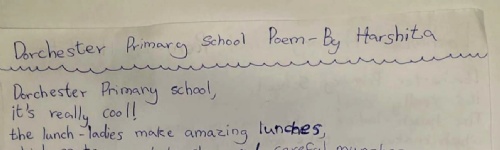 Dorchester Primary School Poem - By Harshita
Dorchester Primary school,
it's really cool!
the lunch-ladies make amazing lunches,
careful